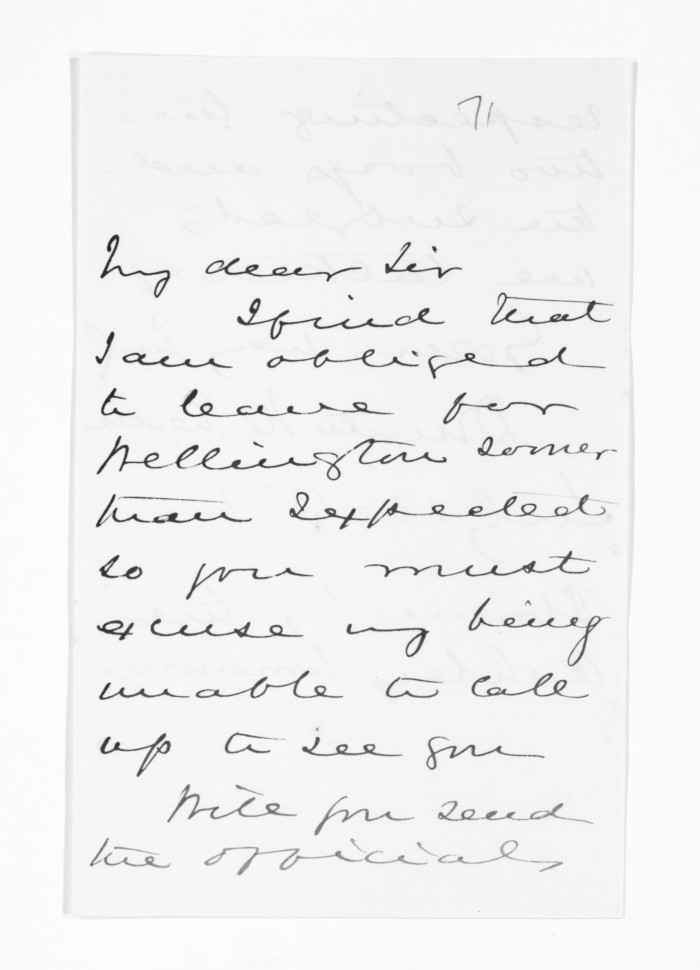 71
My dear Sir
I find that
I am obliged
to leave for
Wellington sooner
than I expected
so you must
excuse my being
unable to call
up to see you
Will you send
the officials